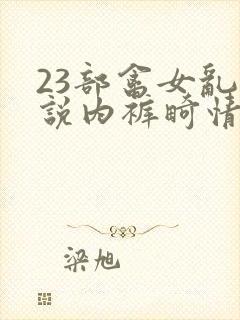 23部畜女乱
説内裤畸情
梁旭